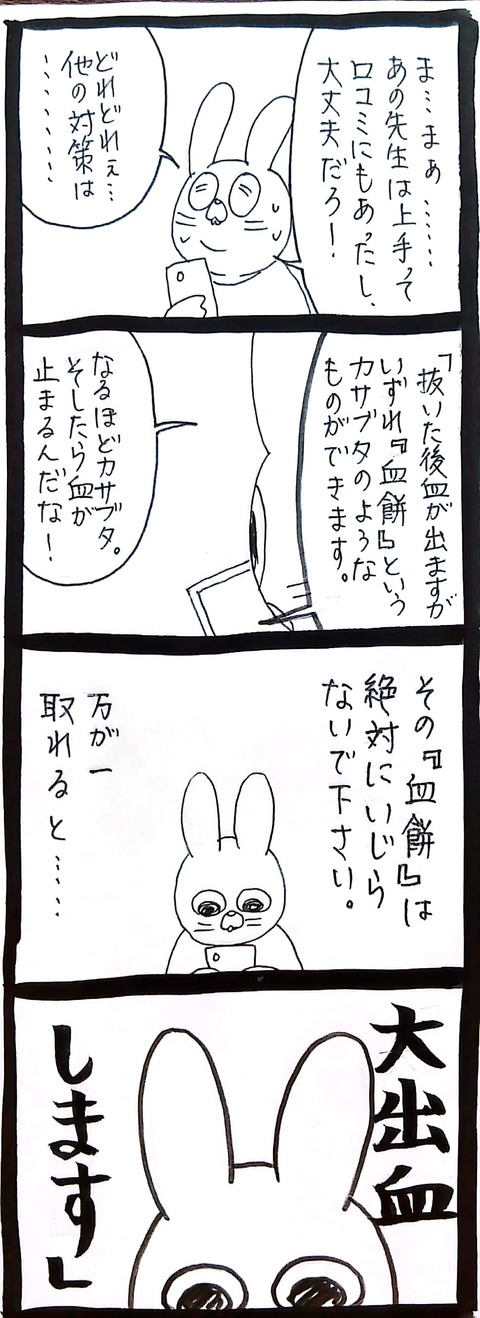 ま…まぁ……
あの先生は上手って
口コミにもあったし、
大丈夫だろ！
どれどれぇ…
他の対策は
………
「抜いた後血が出ますが
いずれ『血餅』という
カサブタのような
ものができます。
なるほどカサブタ。
そしたら血が
止まるんだな！
その『血餅』は
絶対にいじら
ないで下さい。
万が一
取れると……
大出血
します」